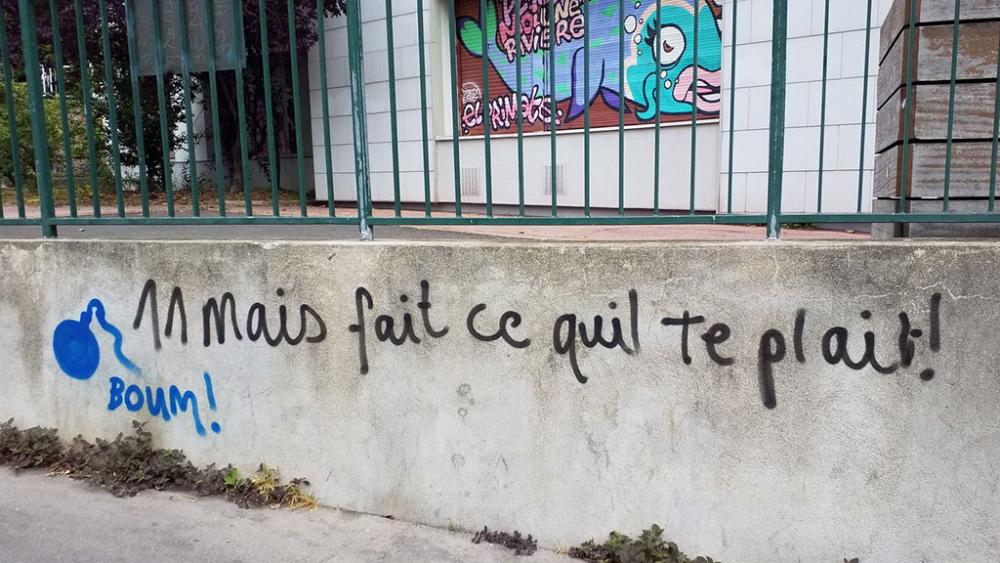 RIVIERE
11 Mais fait ce quil te plait!
BOUM!